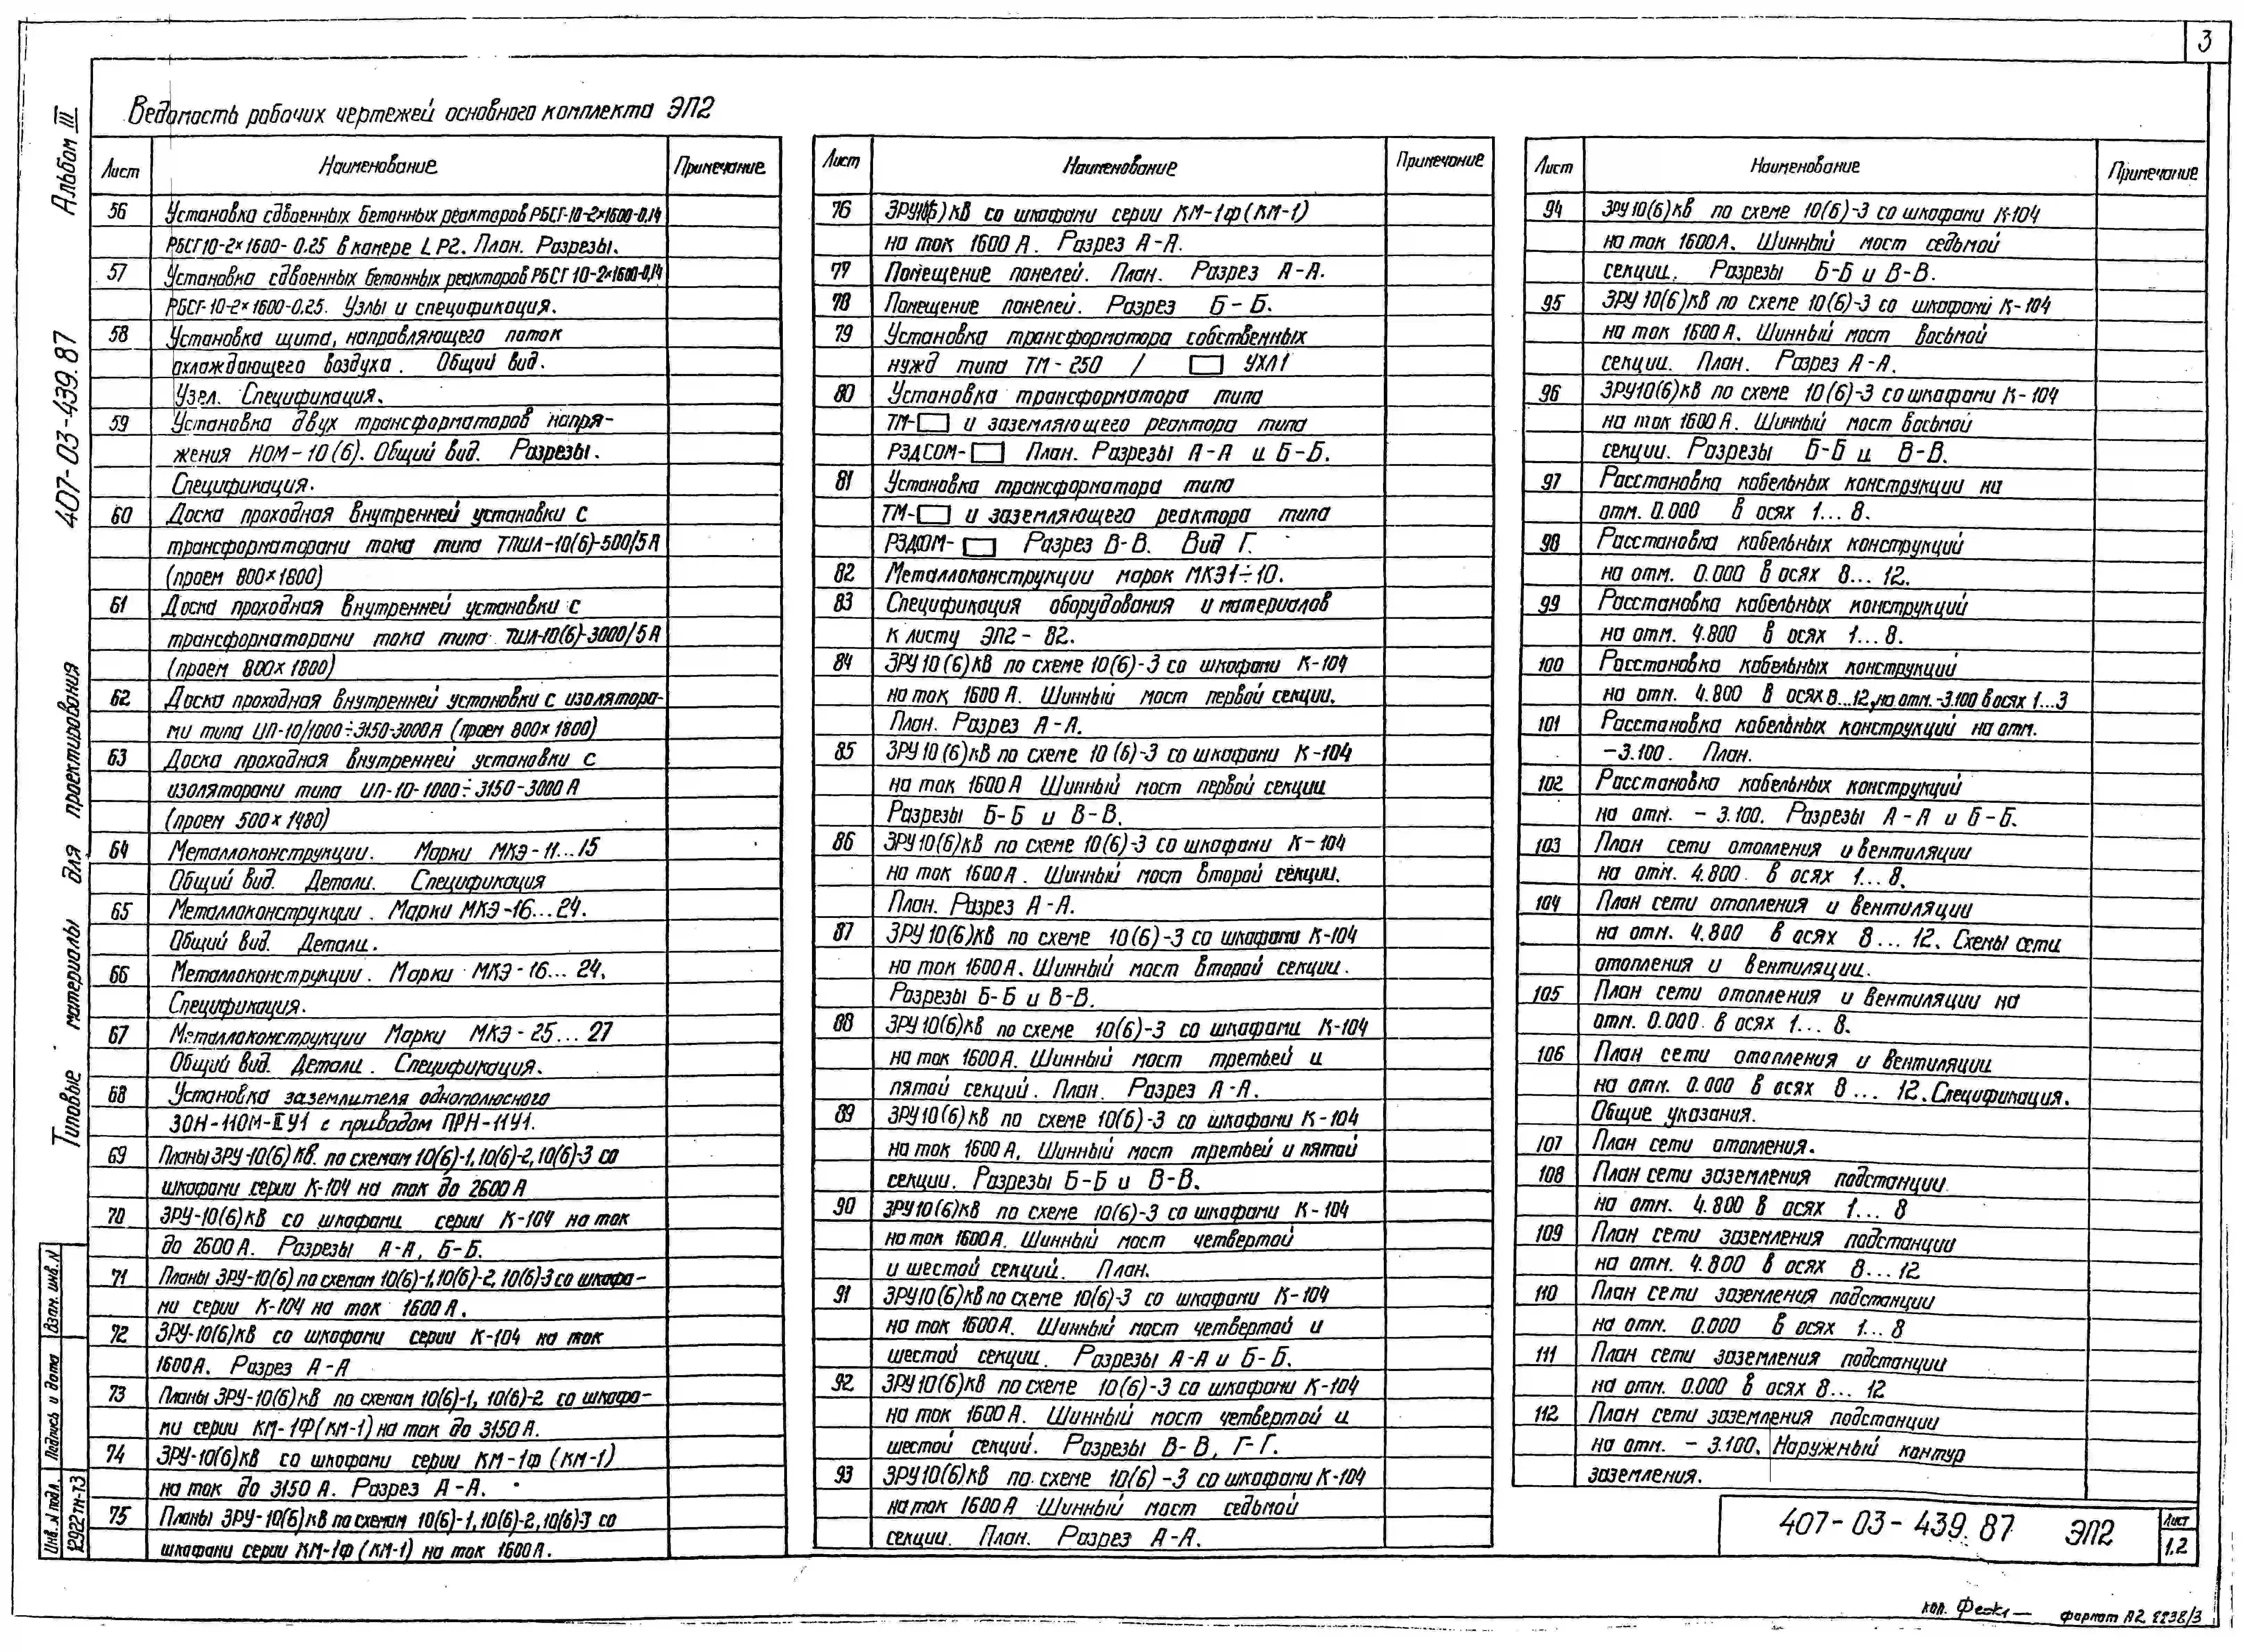 3
Ведомость рабочих чертежей основного комплекта ЭП2
Альбом III
407-03-439.87
Типовые материалы для проектирования
Взам. инв. N
Подпись и дата
Инв. N подл.
12922тм-т3
Лист Наименование Примечание
56 Установка сдвоенных бетонных реакторов РБСГ-10-2×1600-0.14
РБСГ10-2×1600-0.25 в камере LP2. План. Разрезы.
57 Установка сдвоенных бетонных реакторов РБСГ 10-2×1600-0,14
РБСГ-10-2×1600-0.25. Узлы и спецификация.
58 Установка щита, направляющего поток
охлаждающего воздуха. Общий вид.
Узел. Спецификация.
59 Установка двух трансформаторов напря-
жения НОМ-10(6). Общий вид. Разрезы.
Спецификация.
60 Доска проходная внутренней установки с
трансформаторами тока типа ТПШЛ-10(6)-500/5А
(проем 800×1800)
61 Доска проходная внутренней установки с
трансформаторами тока типа ТШЛ-10(6)-3000/5А
(проем 800×1800)
62 Доска проходная внутренней установки с изолятора-
ми типа ИП-10/1000÷3150-3000А (проем 800×1800)
63 Доска проходная внутренней установки с
изоляторами типа ИП-10-1000÷3150-3000А
(проем 500×1480)
64 Металлоконструкции. Марки МКЭ-11...15
Общий вид. Детали. Спецификация
65 Металлоконструкции. Марки МКЭ-16...24.
Общий вид. Детали.
66 Металлоконструкции. Марки МКЭ-16...24.
Спецификация.
67 Металлоконструкции Марки МКЭ-25...27
Общий вид. Детали. Спецификация.
68 Установка заземлителя однополюсного
ЗОН-110М-IIУ1 с приводом ПРН-11У1.
69 Планы ЗРУ-10(6)кВ. по схемам 10(6)-1,10(6)-2,10(6)-3 со
шкафами серии К-104 на ток до 2600А
70 ЗРУ-10(6)кВ со шкафами серии К-104 на ток
до 2600А. Разрезы А-А, Б-Б.
71 Планы ЗРУ-10(6) по схемам 10(6)-1,10(6)-2, 10(6)-3 со шкафа-
ми серии К-104 на ток 1600А.
72 ЗРУ-10(6)кВ со шкафами серии К-104 на ток
1600А. Разрез А-А
73 Планы ЗРУ-10(6)кВ по схемам 10(6)-1, 10(6)-2 со шкафа-
ми серии КМ-1Ф(КМ-1) на ток до 3150А.
74 ЗРУ-10(6)кВ со шкафами серии КМ-1ф (КМ-1)
на ток до 3150А. Разрез А-А.
75 Планы ЗРУ-10(6)кВ по схемам 10(6)-1,10(6)-2,10(6)-3 со
шкафами серии КМ-1ф (КМ-1) на ток 1600А.
Лист Наименование Примечание
76 ЗРУ10(6)кВ со шкафами серии КМ-1ф(КМ-1)
на ток 1600А. Разрез А-А.
77 Помещение панелей. План. Разрез А-А.
78 Помещение панелей. Разрез Б-Б.
79 Установка трансформатора собственных
нужд типа ТМ-250 / УХЛ1
80 Установка трансформатора типа
ТМ- и заземляющего реактора типа
РЗДСОМ- План. Разрезы А-А и Б-Б.
81 Установка трансформатора типа
ТМ- и заземляющего реактора типа
РЗДСОМ- Разрез В-В. Вид Г.
82 Металлоконструкции марок МКЭ1÷10.
83 Спецификация оборудования и материалов
к листу ЭП2-82.
84 ЗРУ10(6)кВ по схеме 10(6)-3 со шкафами К-104
на ток 1600А. Шинный мост первой секции.
План. Разрез А-А.
85 ЗРУ10(6)кВ по схеме 10(6)-3 со шкафами К-104
на ток 1600А Шинный мост первой секции
Разрезы Б-Б и В-В.
86 ЗРУ10(6)кВ по схеме 10(6)-3 со шкафами К-104
на ток 1600А. Шинный мост второй секции.
План. Разрез А-А.
87 ЗРУ10(6)кВ по схеме 10(6)-3 со шкафами К-104
на ток 1600А. Шинный мост второй секции.
Разрезы Б-Б и В-В.
88 ЗРУ10(6)кВ по схеме 10(6)-3 со шкафами К-104
на ток 1600А. Шинный мост третьей и
пятой секций. План. Разрез А-А.
89 ЗРУ10(6)кВ по схеме 10(6)-3 со шкафами К-104
на ток 1600А, Шинный мост третьей и пятой
секции. Разрезы Б-Б и В-В.
90 ЗРУ10(6)кВ по схеме 10(6)-3 со шкафами К-104
на ток 1600А. Шинный мост четвертой
и шестой секций. План.
91 ЗРУ10(6)кВ по схеме 10(6)-3 со шкафами К-104
на ток 1600А. Шинный мост четвертой и
шестой секции. Разрезы А-А и Б-Б.
92 ЗРУ10(6)кВ по схеме 10(6)-3 со шкафами К-104
на ток 1600А. Шинный мост четвертой и
шестой секций. Разрезы В-В, Г-Г.
93 ЗРУ10(6)кВ по схеме 10(6)-3 со шкафами К-104
на ток 1600А Шинный мост седьмой
секции. План. Разрез А-А.
Лист Наименование Примечание
94 ЗРУ10(6)кВ по схеме 10(6)-3 со шкафами К-104
на ток 1600А. Шинный мост седьмой
секции. Разрезы Б-Б и В-В.
95 ЗРУ10(6)кВ по схеме 10(6)-3 со шкафами К-104
на ток 1600А. Шинный мост восьмой
секции. План. Разрез А-А.
96 ЗРУ10(6)кВ по схеме 10(6)-3 со шкафами К-104
на ток 1600А. Шинный мост восьмой
секции. Разрезы Б-Б и В-В.
97 Расстановка кабельных конструкции на
отм. 0.000 в осях 1...8.
98 Расстановка кабельных конструкций
на отм. 0.000 в осях 8...12.
99 Расстановка кабельных конструкций
на отм. 4.800 в осях 1...8.
100 Расстановка кабельных конструкций
на отм. 4.800 в осях 8...12, на отм. -3.100 в осях 1...3
101 Расстановка кабельных конструкций на отм.
-3.100. План.
102 Расстановка кабельных конструкций
на отм. - 3.100. Разрезы А-А и Б-Б.
103 План сети отопления и вентиляции
на отм. 4.800 в осях 1...8.
104 План сети отопления и вентиляции
на отм. 4.800 в осях 8...12. Схемы сети
отопления и вентиляции.
105 План сети отопления и вентиляции на
отм. 0.000 в осях 1...8.
106 План сети отопления и вентиляции
на отм. 0.000 в осях 8...12. Спецификация.
Общие указания.
107 План сети отопления.
108 План сети заземления подстанции
на отм. 4.800 в осях 1...8
109 План сети заземления подстанции
на отм. 4.800 в осях 8...12
110 План сети заземления подстанции
на отм. 0.000 в осях 1...8
111 План сети заземления подстанции
на отм. 0.000 в осях 8...12
112 План сети заземления подстанции
на отм. - 3.100. Наружный контур
заземления.
407-03-439.87 ЭП2
Лист
1.2
коп. формат А2